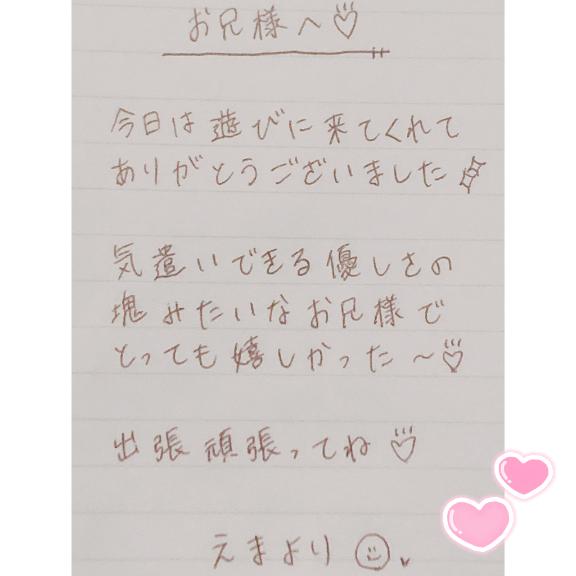 お兄様へ♡
今日は遊びに来てくれて
ありがとうございました
気遣いできる優しさの
塊みたいなお兄様で
とっても嬉しかった〜♡
出張頑張ってね♡
えまより☺♥